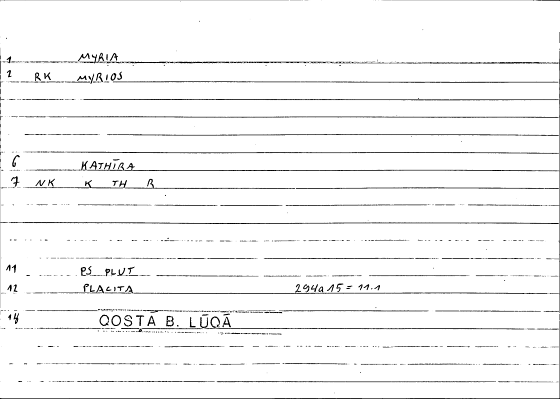 1 MYRIA
2 RK MYRIOS
6 KATHĪRA
7 NK K TH R
11 PS PLUT
12 PLACITA 294a15 = 11.1
14 QOSṬĀ B. LŪQĀ